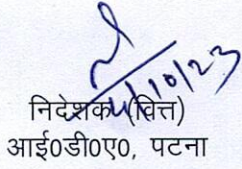 4/10/23
निदेशक (वित्त)
आई0डी0ए0, पटना